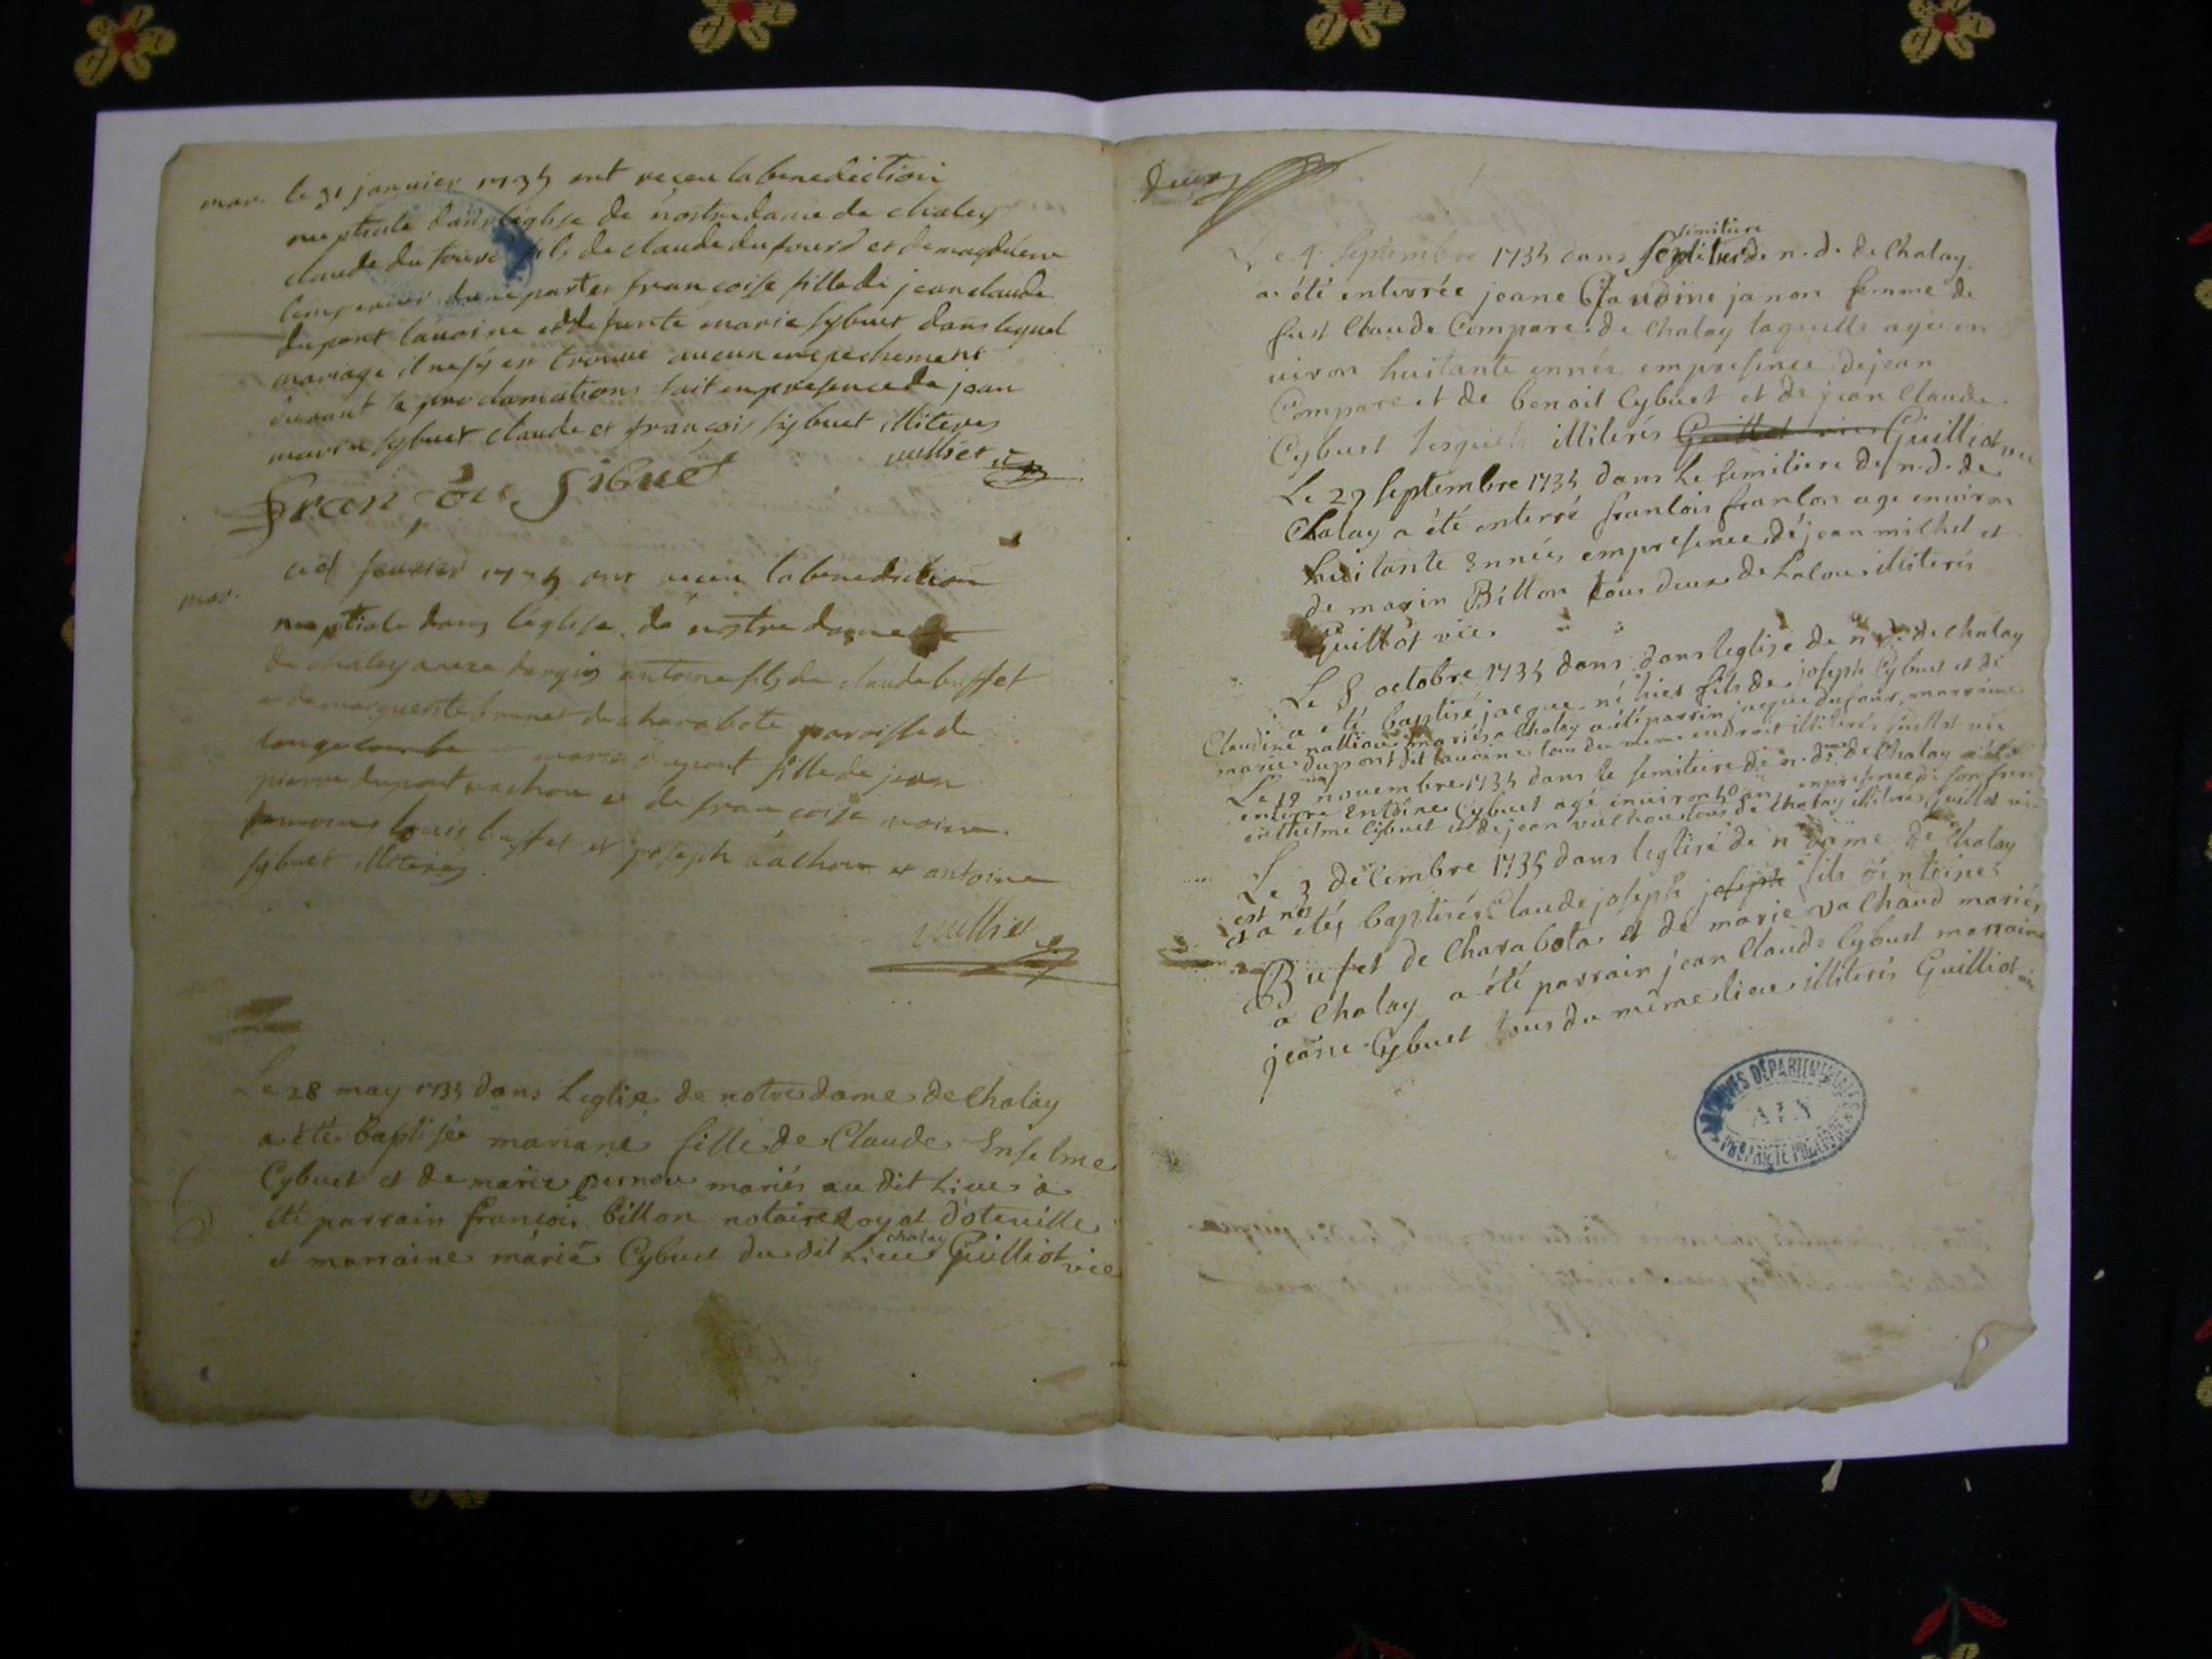 mar. le 31 janvier 1735 ont receu la benediction
nuptiale dans léglise de nostre dame de chaley
claude du four fils de claude du four et de magdulene
d'une part et francoise fille de jean claude
dupont lavoine et defunte marie sybuet dans lequel
mariage il ne sy est trouvé aucun enpechement
durant le proclamations fait en presence de jean
marin sybuet claude et françois sybuet illiteres
vullies
François Sibuet
mar. fevrier 1735 ont receu la benediction
nuptiale dans léglise de nostre dame
de chaley antoine fils de claude buffet
et de marguerite brunet de charabote paroisse de
longecombe marie dupont fille de jean
pierre dupont vachou et de francoise moine
louis buffet et joseph vachou et antoine
sybuet illiteres
vullies
Le 28 may 1735 dans Leglise de notre dame de Chalay
a été Baptisée mariane fille de Claude Enselme
Cybuet et de marie pernou mariés au dit Lieu a
été parrain françois billon notaire Royal doteville
et marraine marie Cybuet du dit Lieu chalay Guilliot vic
deux
Le 4 Septembre 1735 dans semitiere de n. d. de Chalay
a été enterrée jeane Claudine janon femme de
fust Claude Compare de Chalay laquelle agée en
viron huitante ennés empresence de jean
Compare et de benoit Cybuet et de jean Claude
Cybuet lesquels illiterés Guilliot vic
Le 29 septembre 1735 dans Le semitiere de n. d. de
Chalay a été enterré franlois franlon age environ
huitante Ennées empresence dé jean milhel et
de marin Billon tous deux de Lalou illiterés
Guilliot vic
Le 8 octobre 1735 dans dans leglise de n. d. de Chalay
a eté baptisé jacque né hier fils de joseph Cybuet et de
Claudine mariés a Chalay a été parrin jacque dufour, marraine
marie dupont dit lavoine tous du meme endroit illiterés, guilliot vic
Le 19 novembre 1735 dans le semitiere de n. dme de Chalay a été
enterre Entoine Cybuet agé environ 40 ans, empresence de son frere
enthelme Cybuet et de jean vachou tous de Chalay illiterés, guilliot vic
Le 3 décembre 1735 dans leglise de n dame de Chalay
est né
et a etéz baptisés Claude joseph joseph fils d'entoine
Bufet de Charabota et de marie vachaud mariés
a Chalay a été parrain jean Claude Cybuet marraine
jeane Cybuet tous du même lieu illiterés Guilliot vic
ARCHIVES DEPARTEMENTALES
AIN
PROPRIETE PUBLIQUE